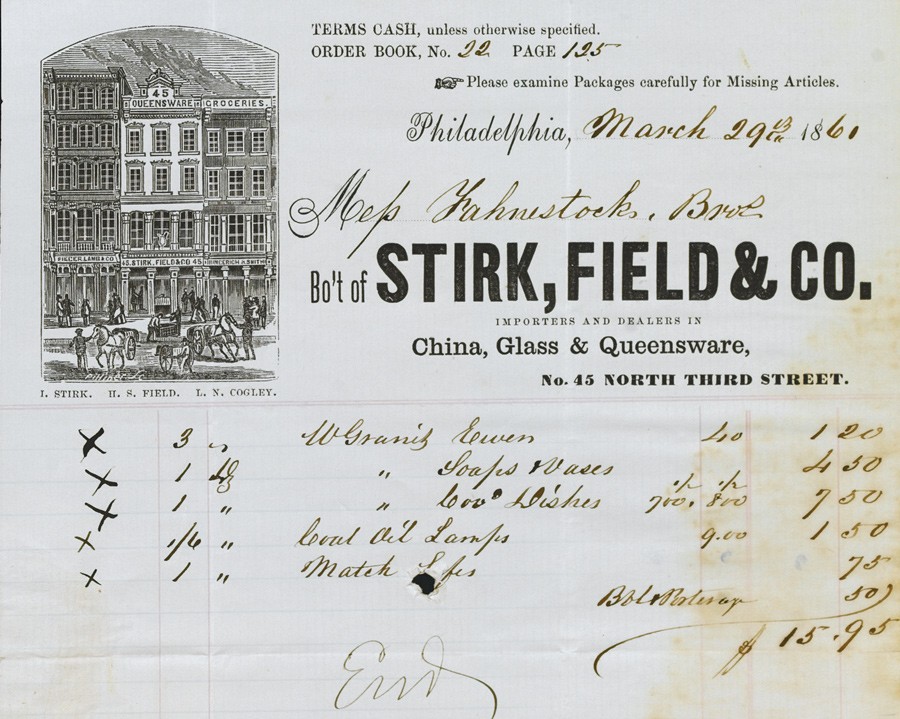 TERMS CASH, unless otherwise specified.
ORDER BOOK, No. 22 PAGE 125
Please examine Packages carefully for Missing Articles.
Philadelphia, March 29th 1861
Mess Fahnestock, Bros
Bo't of STIRK, FIELD & CO.
IMPORTERS AND DEALERS IN
China, Glass & Queensware,
No. 45 NORTH THIRD STREET.
45
QUEENSWARE GROCERIES.
45. STIRK, FIELD & CO 45
I. STIRK. H. S. FIELD. L. N. COGLEY.
X 3 " W Granit Ewers 40 1 20
X 1 Dz " Soaps & Vases 4 50
X 1 " " Cov'd Dishes 1/2 700. 1/2 800 7 50
X 1/6 " Coal Oil Lamps 9.00 1 50
X 1 " Match 75
50
$ 15.95